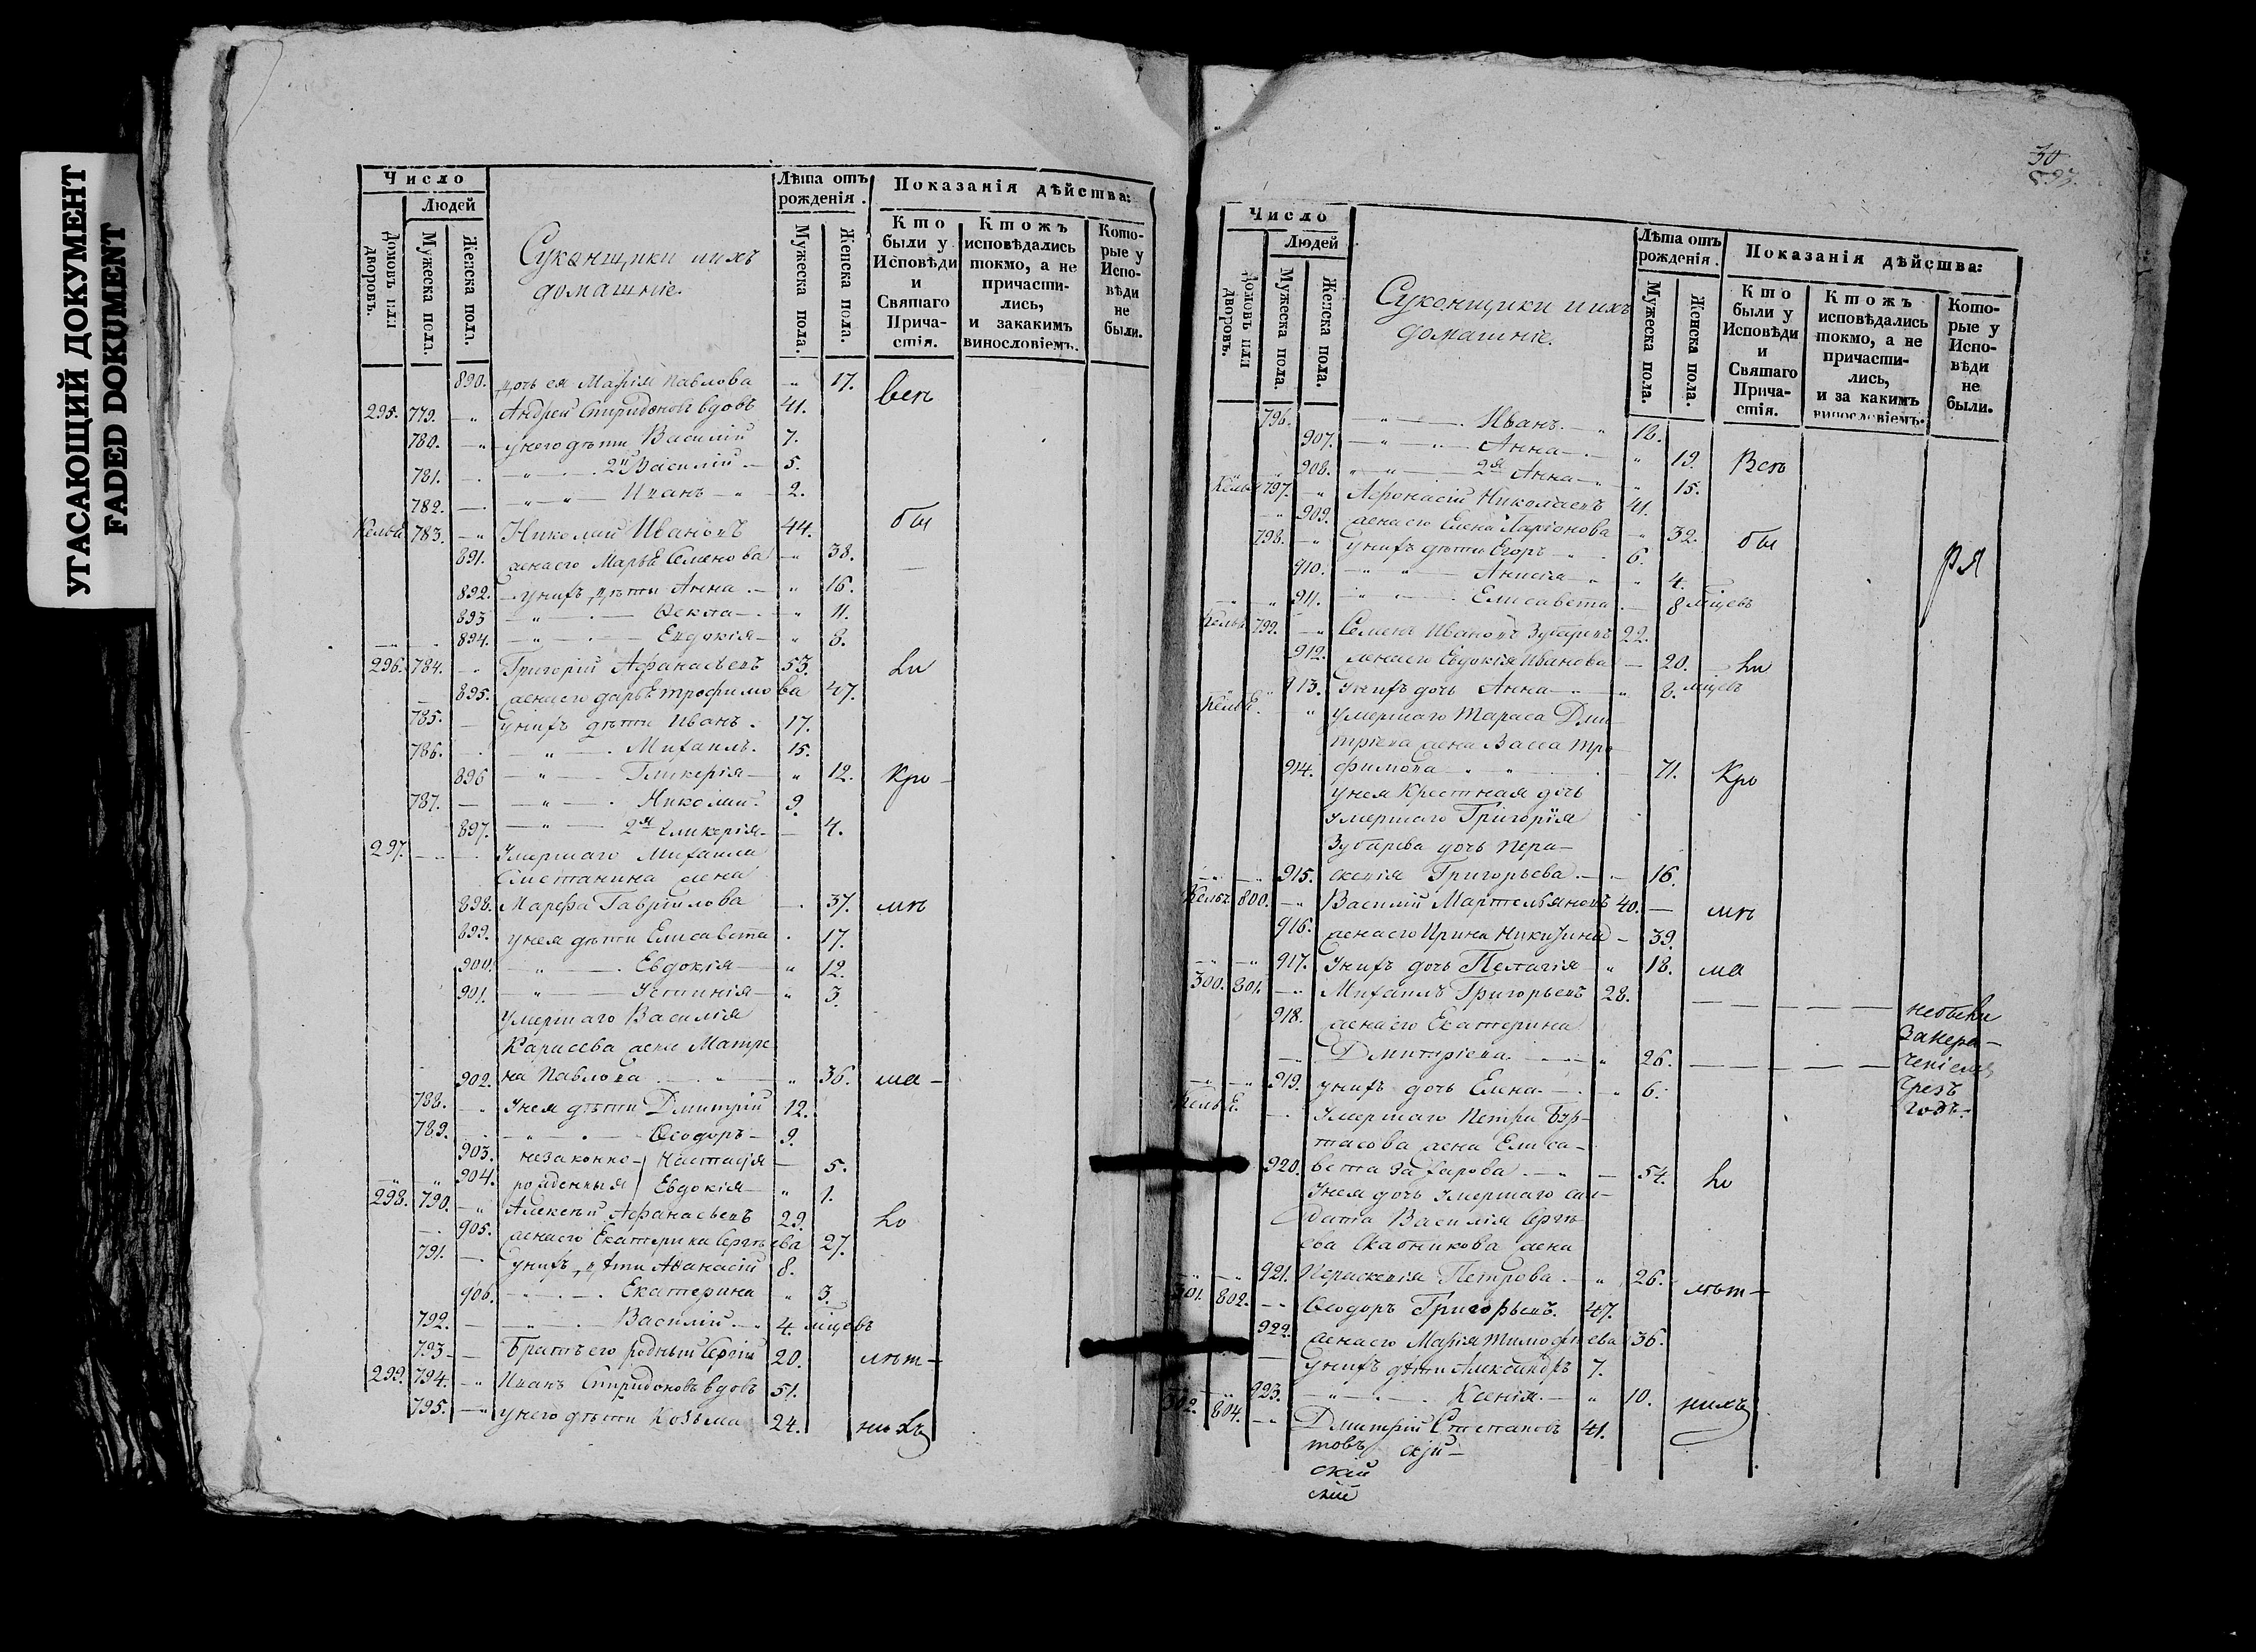 УГАСАЮЩИЙ ДОКУМЕНТ
FADED DOKUMENT
Число
Людей
Домовъ или дворовъ.
Мужеска пола.
Женска пола.
Суконщики и ихъ
домашніе.
Лѣта отъ рожденія.
Мужеска пола.
Женска пола.
Показанія дѣйства:
Кто были у Исповѣди и Святаго Прича-стія.
Ктожъ исповѣдались токмо, а не причасти-лись, и закакимъ винословіемъ.
Кото-рые у Испо-вѣди не были.
890. дочь ея Марія Павлова 17. всп
295. 779. Андрей Спиридоновъ вдовъ 41.
780. у него дѣти Василій 7.
781. 2й Василій 5.
782. Иванъ 2.
783. Николай Ивановъ 44. бы
891. жена его Марья Семенова 38.
892. у нихъ дѣти Анна 16.
893 Ѳекла 11.
894. Евдокія 8.
296. 784. Григорій Афанасьевъ 53.
895. жена его Дарья Трофимова 47.
785. у нихъ дѣти Иванъ 17.
786. Михаилъ 15.
896 Гликерія 12.
787. Николай 9.
897. 2я Гликерія 4.
297. Умершаго Михаила
Сметанина жена
898. Марфа Гаврилова 37.
899. у нея дѣти Елисавета 17.
900. Евдокія 12.
901. Устинія 3
Умершаго Василія
Карисева жена Матре
902. на Павлова 36.
788. У нея дѣти Дмитрій 12.
789. Ѳеодоръ 9.
903. незаконно- Настасія 5.
904. рожденныя Евдокія 1.
298. 790. Алексѣй Афанасьевъ 29.
905. жена его Екатерина Сергѣева 27.
791. У нихъ дѣти Афанасій 8.
906. Екатерина 3.
792. Василій 4. мцовъ
793 Братъ его родный Сергій 20.
299. 794. Иванъ Спиридоновъ вдовъ 51.
795. у него дѣти Козьма 24.
30
Число
Людей
Домовъ или дворовъ.
Мужеска пола.
Женска пола.
Суконщики и ихъ
домашніе.
Лѣта отъ рожденія.
Мужеска пола.
Женска пола.
Показанія дѣйства:
Кто были у Исповѣди и Святаго Прича-стія.
Ктожъ исповѣдались токмо, а не причасти-лись, и за какимъ винословіемъ.
Кото-рые у Испо-вѣди не были.
796. Иванъ 12.
907. Анна 19.
908. 2я Анна 15.
797. Афонасій Николаевъ 41.
909. жена его Елена Ларіонова 32. бы
798. У нихъ дѣти Егоръ 6.
910. Анисія 4.
911. Елисавета 8 мцовъ
799. Семенъ Ивановъ Зубаревъ 22.
912. жена его Евдокія Иванова 20.
913. У нихъ дочь Анна 8. мцовъ
Умершаго Тараса Дми-
тріева жена Васса Тро-
914. фимова 71.
у нея Крестная дочь
Умершаго Григорія
Зубарева дочь Пера-
915. скевія Григорьева 16.
800. Василій Мартемьяновъ 40.
916. жена его Ирина Никитина 39.
917. У нихъ дочь Пелагія 18.
300. 801. Михаилъ Григорьевъ 28.
918. жена его Екатерина
Дмитріева 26.
919. у нихъ дочь Елена 6.
годъ
Умершаго Петра Бур-
тасова жена Елиса-
920. вета Захарова 54.
У нея дочь Умершаго сол-
дата Василія Сергѣ
ева Скатникова жена
921. Перасковія Петрова 26.
301. 802. Ѳеодоръ Григорьевъ 47.
922. жена его Марія Тимофѣева 36.
У нихъ дѣти Александръ 7.
923. Ксенія 10.
302. 804. Дмитрій Степановъ 41.
товъ скій
скій